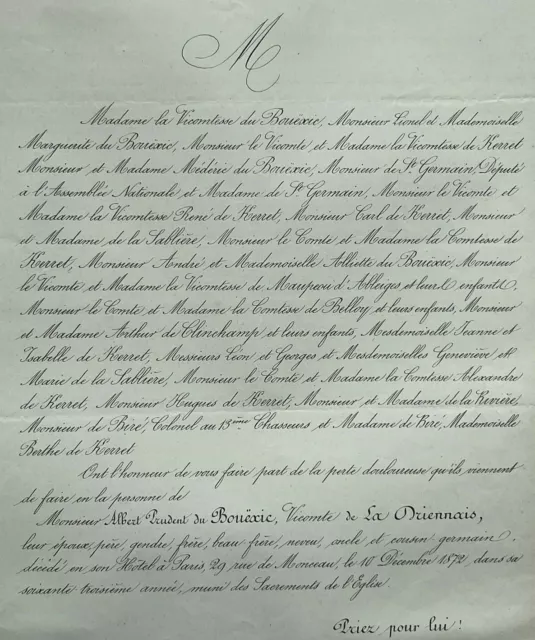 M
Madame la Vicomtesse du Bouëxic, Monsieur Lionel et Mademoiselle
Marguerite du Bouëxic, Monsieur le Vicomte et Madame la Vicomtesse de Kerret
Monsieur et Madame Médéric du Bouëxic, Monsieur de St. Germain, Député
à l'Assemblée Nationale et Madame de St. Germain, Monsieur le Vicomte et
Madame la Vicomtesse René de Kerret, Monsieur Carl de Kerret, Monsieur
et Madame de la Sablière, Monsieur le Comte et Madame la Comtesse de
Kerret, Monsieur André et Mademoiselle Alliette du Bouëxic, Monsieur
le Vicomte et Madame la Vicomtesse de Maupeou d'Ableiges et leurs enfants,
Monsieur le Comte et Madame la Comtesse de Belloy et leurs enfants, Monsieur
et Madame Arthur de Clinchamp et leurs enfants, Mesdemoiselle Jeanne et
Isabelle de Kerret, Messieurs Léon et Georges et Mesdemoiselles Geneviève et
Marie de la Sablière, Monsieur le Comte et Madame la Comtesse Alexandre
de Kerret, Monsieur Hugues de Kerret, Monsieur et Madame de la Rivière,
Monsieur de Biré, Colonel au 13ème Chasseurs et Madame de Biré, Mademoiselle
Berthe de Kerret
Ont l'honneur de vous faire part de la perte douloureuse qu'ils viennent
de faire en la personne de
Monsieur Albert Prudent du Bouëxic, Vicomte de La Driennais,
leur époux, père, gendre, frère, beau frère, neveu, oncle et cousin germain,
décédé en son Hôtel à Paris, 29 rue de Monceau, le 10 Décembre 1872, dans sa
soixante troisième année, muni des Sacrements de l'Eglise.
Priez pour lui!